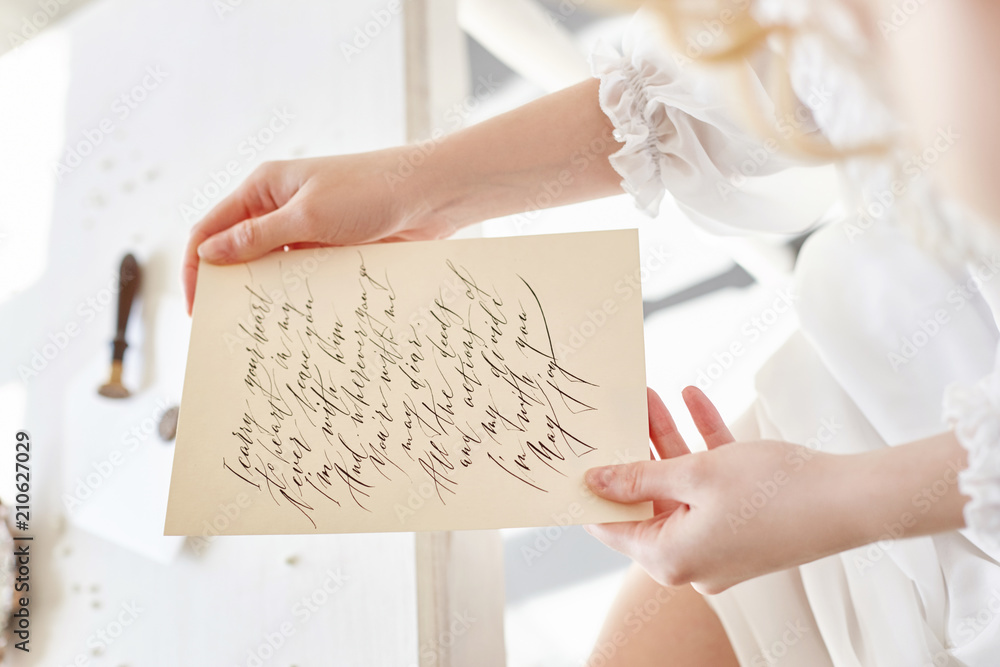 I carry your heart
the heart in my
Never leave you
I'm with him
And, wherever you go
You're with me
may diar.
All the deeds of
and actions
my
I'm with you
May joy
Adobe Stock | #210627029